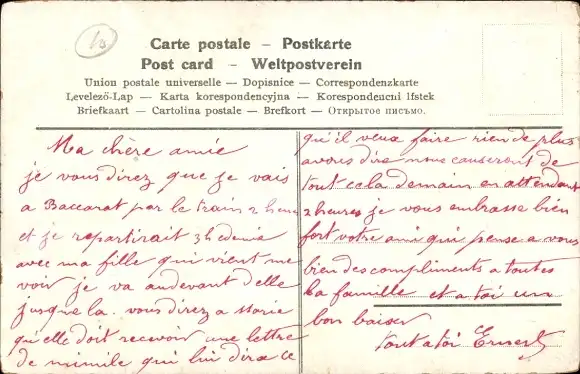 10
Carte postale – Postkarte
Post card – Weltpostverein
Union postale universelle — Dopisnice — Correspondenzkarte
Levelező-Lap — Karta korespondencyjna — Korespondencni lfstek
Briefkaart — Cartolina postale — Brefkort — Открытое письмо.
Ma chère amie
je vous direz que je vais
a Baccarat par le train 2 heure
et je repartirait 3h demie
avec ma fille qui vient me
voir je va audevant delle
jusque la. vous direz a
qu'elle doit recevoir une lettre
de mimile qui lui dira ce
qu'il veux faire rien de plus
avous dire nous causeront de
tout cela demain en attendant
2 heures je vous embrasse bien
fort votre ami qui pense a vous
bien des compliments a toutes
la famille et a toi un
bon baiser
tout a toi Ernest